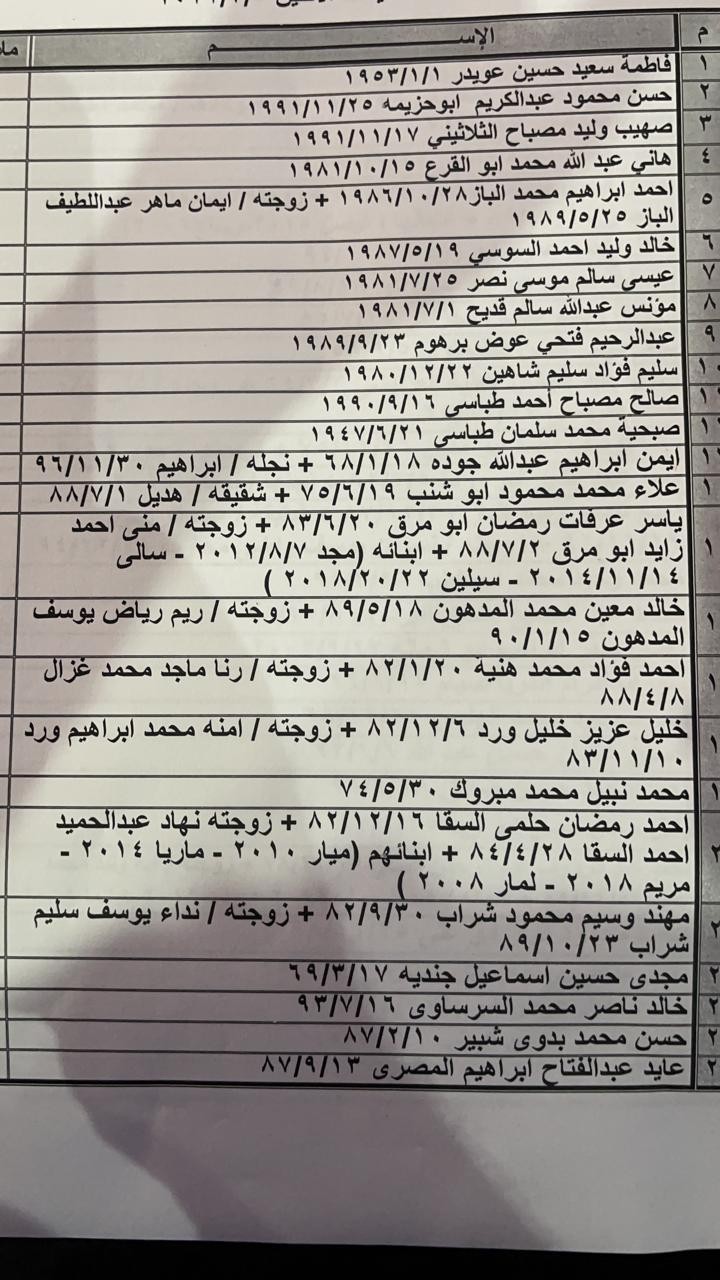 م الإســـــم
١ فاطمة سعيد حسين عويدر ١٩٥٣/١/١
٢ حسن محمود عبدالكريم ابوحزيمه ١٩٩١/١١/٢٥
٣ صهيب وليد مصباح الثلاثيني ١٩٩١/١١/١٧
٤ هاني عبد الله محمد ابو القرع ١٩٨١/١٠/١٥
٥ احمد ابراهيم محمد الباز١٩٨٦/١٠/٢٨ + زوجته / ايمان ماهر عبداللطيف
الباز ١٩٨٩/٥/٢٥
٦ خالد وليد احمد السوسي ١٩٨٧/٥/١٩
٧ عيسى سالم موسى نصر ١٩٨١/٧/٢٥
٨ مؤنس عبدالله سالم قديح ١٩٨١/٧/١
٩ عبدالرحيم فتحي عوض برهوم ١٩٨٩/٩/٢٣
سليم فؤاد سليم شاهين ١٩٨٠/١٢/٢٢
صالح مصباح أحمد طباسى ١٩٩٠/٩/١٦
صبحية محمد سلمان طباسى ١٩٤٧/٦/٢١
ايمن ابراهيم عبدالله جوده ٦٨/١/١٨ + نجله / ابراهيم ٩٦/١١/٣٠
علاء محمد محمود ابو شنب ٧٥/٦/١٩ + شقيقه / هديل ٨٨/٧/١
ياسر عرفات رمضان ابو مرق ٨٣/٦/٢٠ + زوجته / منى احمد
زايد ابو مرق ٨٨/٧/٢ + ابنائه (مجد ٢٠١٢/٨/٧ - سالى
٢٠١٤/١١/١٤ - سيلين ٢٠١٨/٢٠/٢٢ )
خالد معين محمد المدهون ٨٩/٥/١٨ + زوجته / ريم رياض يوسف
المدهون ٩٠/١/١٥
احمد فؤاد محمد هنية ٨٢/١/٢٠ + زوجته / رنا ماجد محمد غزال
٨٨/٤/٨
خليل عزيز خليل ورد ٨٢/١٢/٦ + زوجته / امنه محمد ابراهيم ورد
٨٣/١١/١٠
محمد نبيل محمد مبروك ٧٤/٥/٣٠
احمد رمضان حلمى السقا ٨٢/١٢/١٦ + زوجته نهاد عبدالحميد
احمد السقا ٨٤/٤/٢٨ + ابنائهم (ميار ٢٠١٠ - ماريا ٢٠١٤ -
مريم ٢٠١٨ - لمار ٢٠٠٨ )
مهند وسيم محمود شراب ٨٢/٩/٣٠ + زوجته / نداء يوسف سليم
شراب ٨٩/١٠/٢٣
مجدى حسين اسماعيل جنديه ٦٩/٣/١٧
خالد ناصر محمد السرساوى ٩٣/٧/١٦
حسن محمد بدوى شبير ٨٧/٢/١٠
عايد عبدالفتاح ابراهيم المصرى ٨٧/٩/١٣